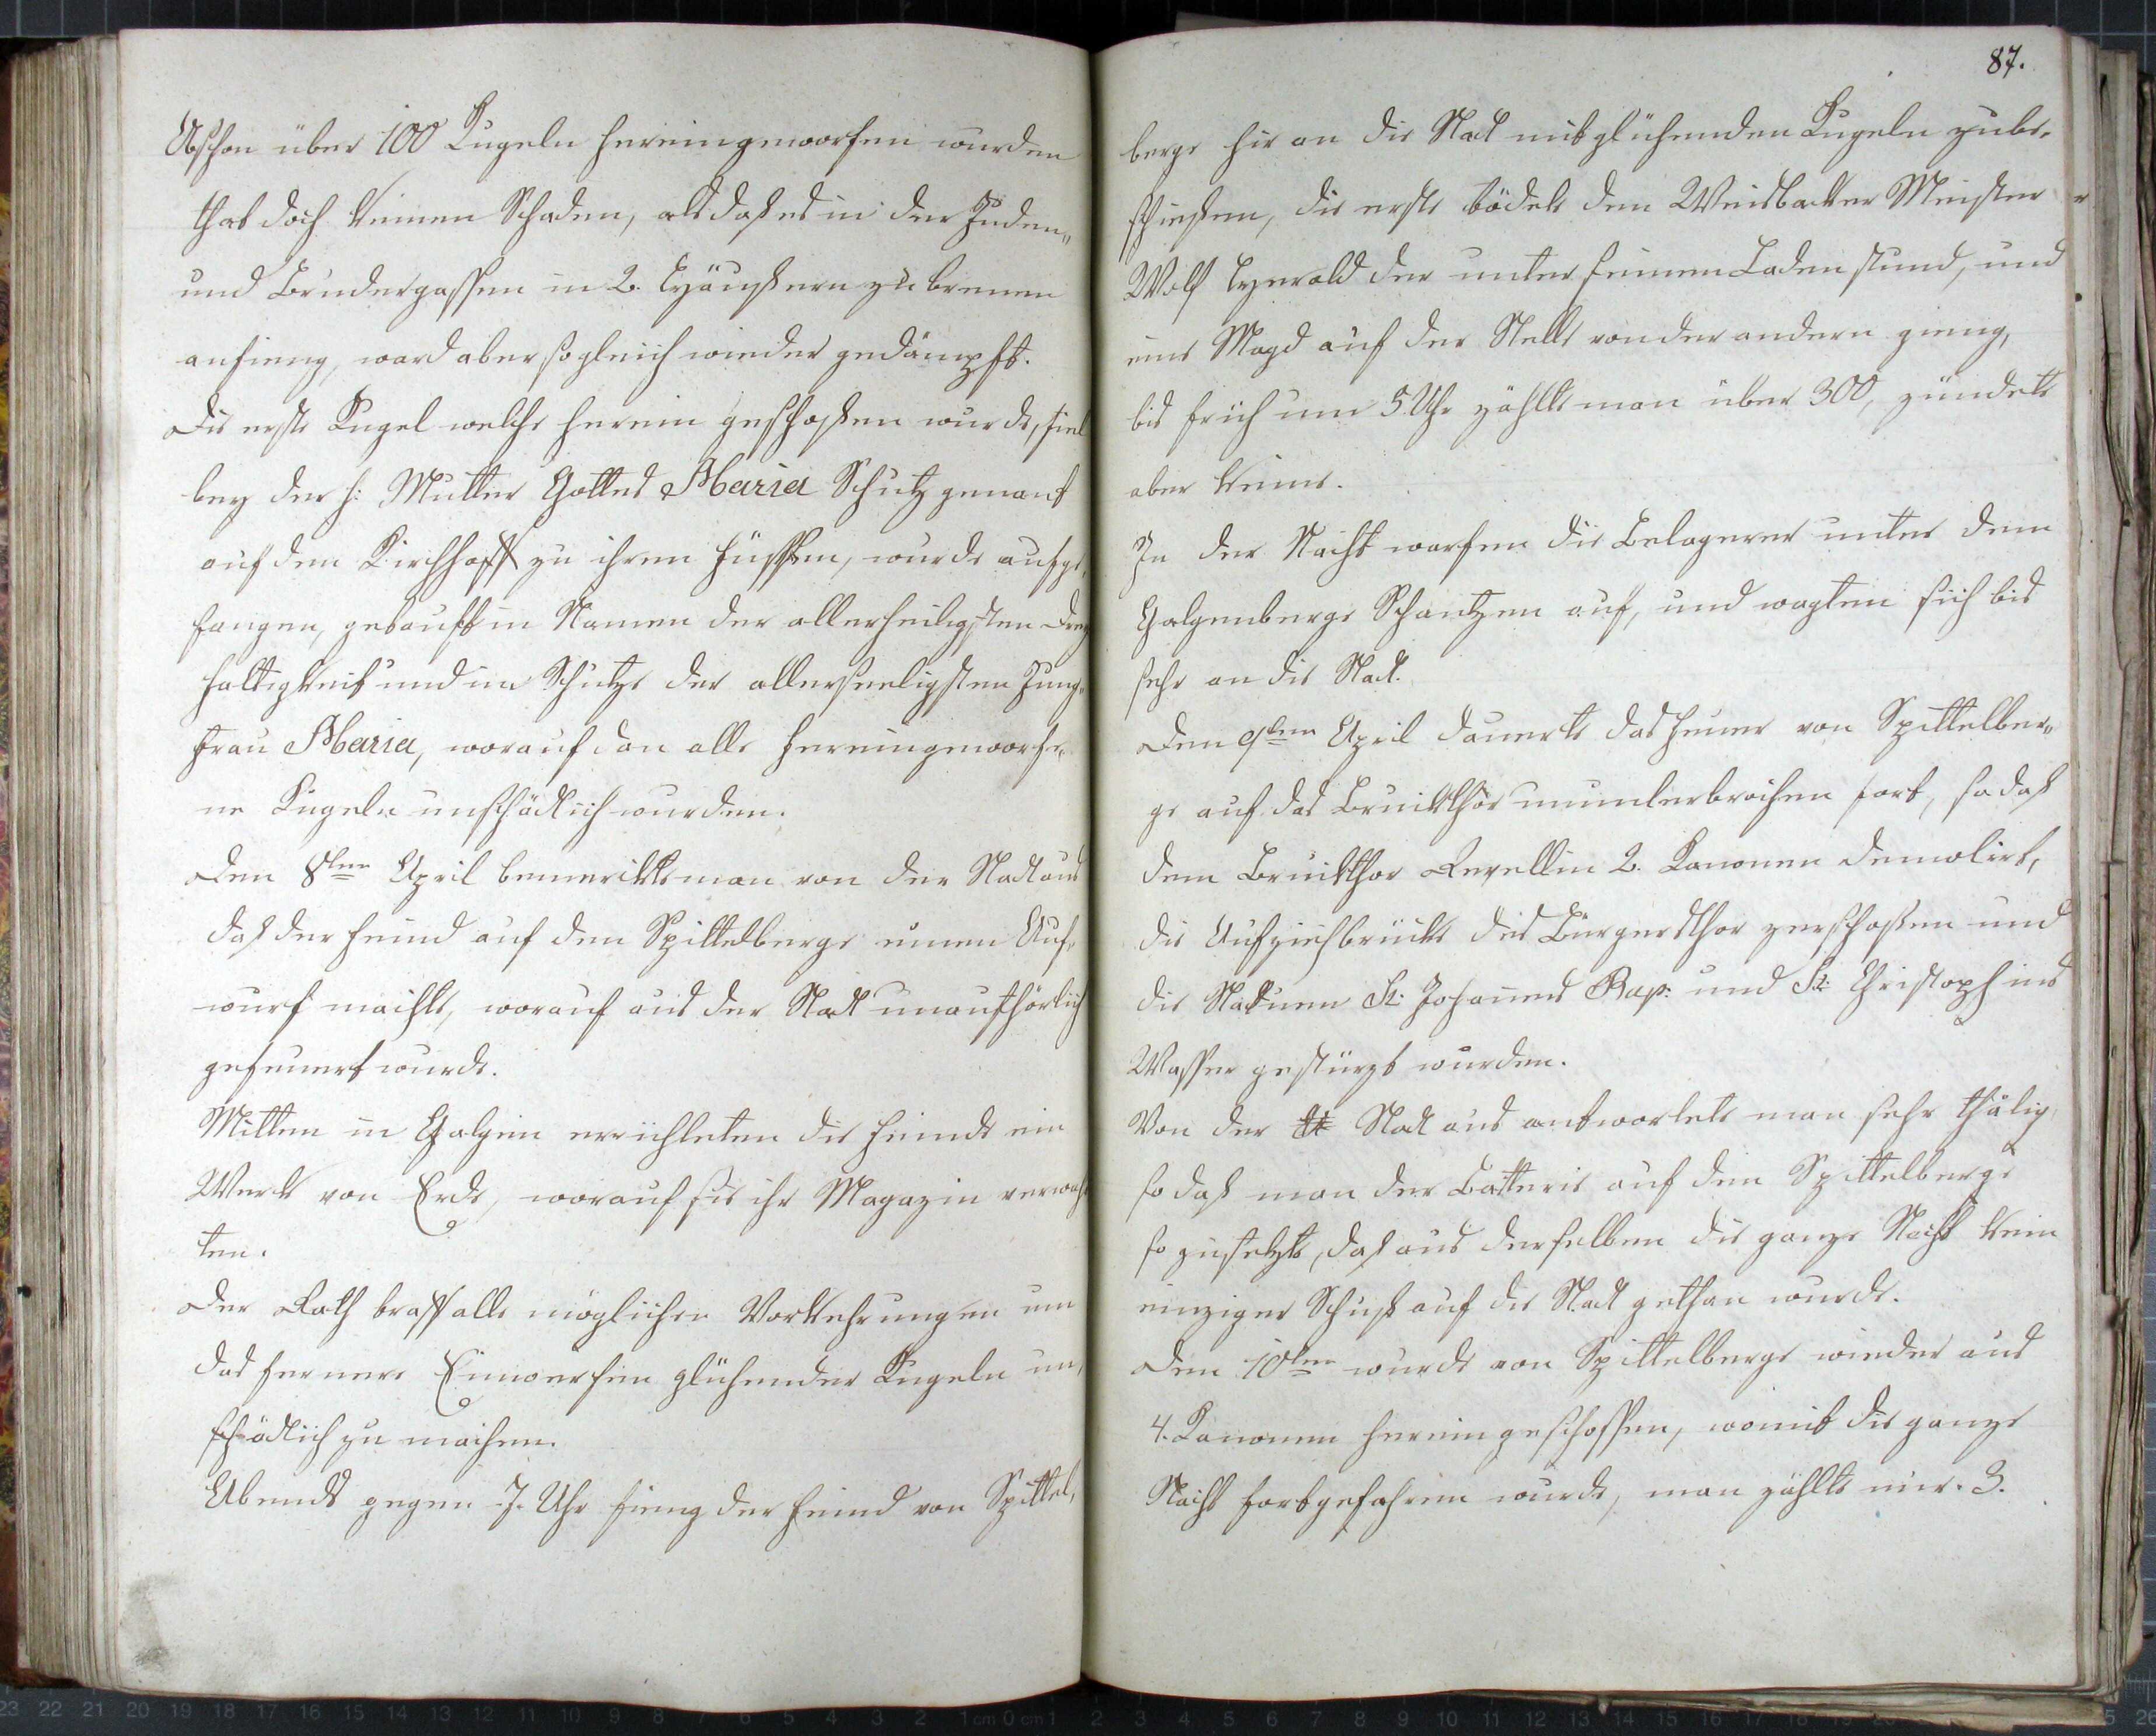 Obschon über 100 Kugeln hereingeworfen wurden
that doch keinen Schaden, als daß es in der Juden„
und Brudergassen in 2. Häusern zu brenen
anfieng, ward aber sogleich wieder gedämpft.
Die erste Kugel welche herein geschoßen wurde, fiel
bey der h: Mutter Gottes Maria Schutz genant
auf dem Kirchhoff zu ihren Füssen, wurde aufge„
fangen, getauft in Namen der allerheiligsten Drey
faltigkeit und im Schutze der allerseeligsten Jung„
frau Maria, worauf dan alle hereingeworfe„
ne Kugeln unschädlich wurden.
Den 8ten April bemerkte man von der Stadt aus
daß der Feind auf dem Spittelberge einen Auf„
wurf machte, worauf aus der Stadt unaufhörlich
gefeuert wurde.
Mitten in Galgen errichteten die Feinde ein
Werk von Erde, worauf sie ihr Magazin verwahr
ten.
Der Rath traff alle möglichen Vorkehrungen um
das fernere Einwerfen glühender Kugeln un„
schädlich zu machen.
Abends gegen 7. Uhr fieng der Feind von Spittel„
87.
berge hir an die Stadt mit glühenden Kugeln zu be„
schießen, die erste tödete den Weisbecker Meister
Wolf der unter seinem Laden stund, und
eine Magd auf der Stelle von der andern gieng,
bis früh um 5 Uhr zählte man über 300, zündete
aber keine.
In der Nacht warfen die Belagerer unter dem
Galgenberge Schantzen auf, und wagten sich bis
sehr an die Stadt.
Den 9ten April dauerte das Feuer von Spittelber„
ge auf das Bruckthor ununterbrochen fort, so daß
dem Bruckthor Revellin 2. Kanonen demolirt,
die Aufziehbrücke des Bürgersthor zerschoßen und
die Statuen St: Johannes Bap: und St: Christoph ins
Wasser gestürzt wurden.
Von der Stadt aus antwortete man sehr thätig,
so daß man der Batterie auf dem Spittelberge
so zusetzte, daß aus derselben die ganze Nacht kein
einziger Schuß auf die Stadt gethan wurde.
Den 10ten wurde von Spittelberge wieder aus
4. Kanonen herein geschossen, womit die ganze
Nacht fortgefahren wurde, man zählte nur. 3.